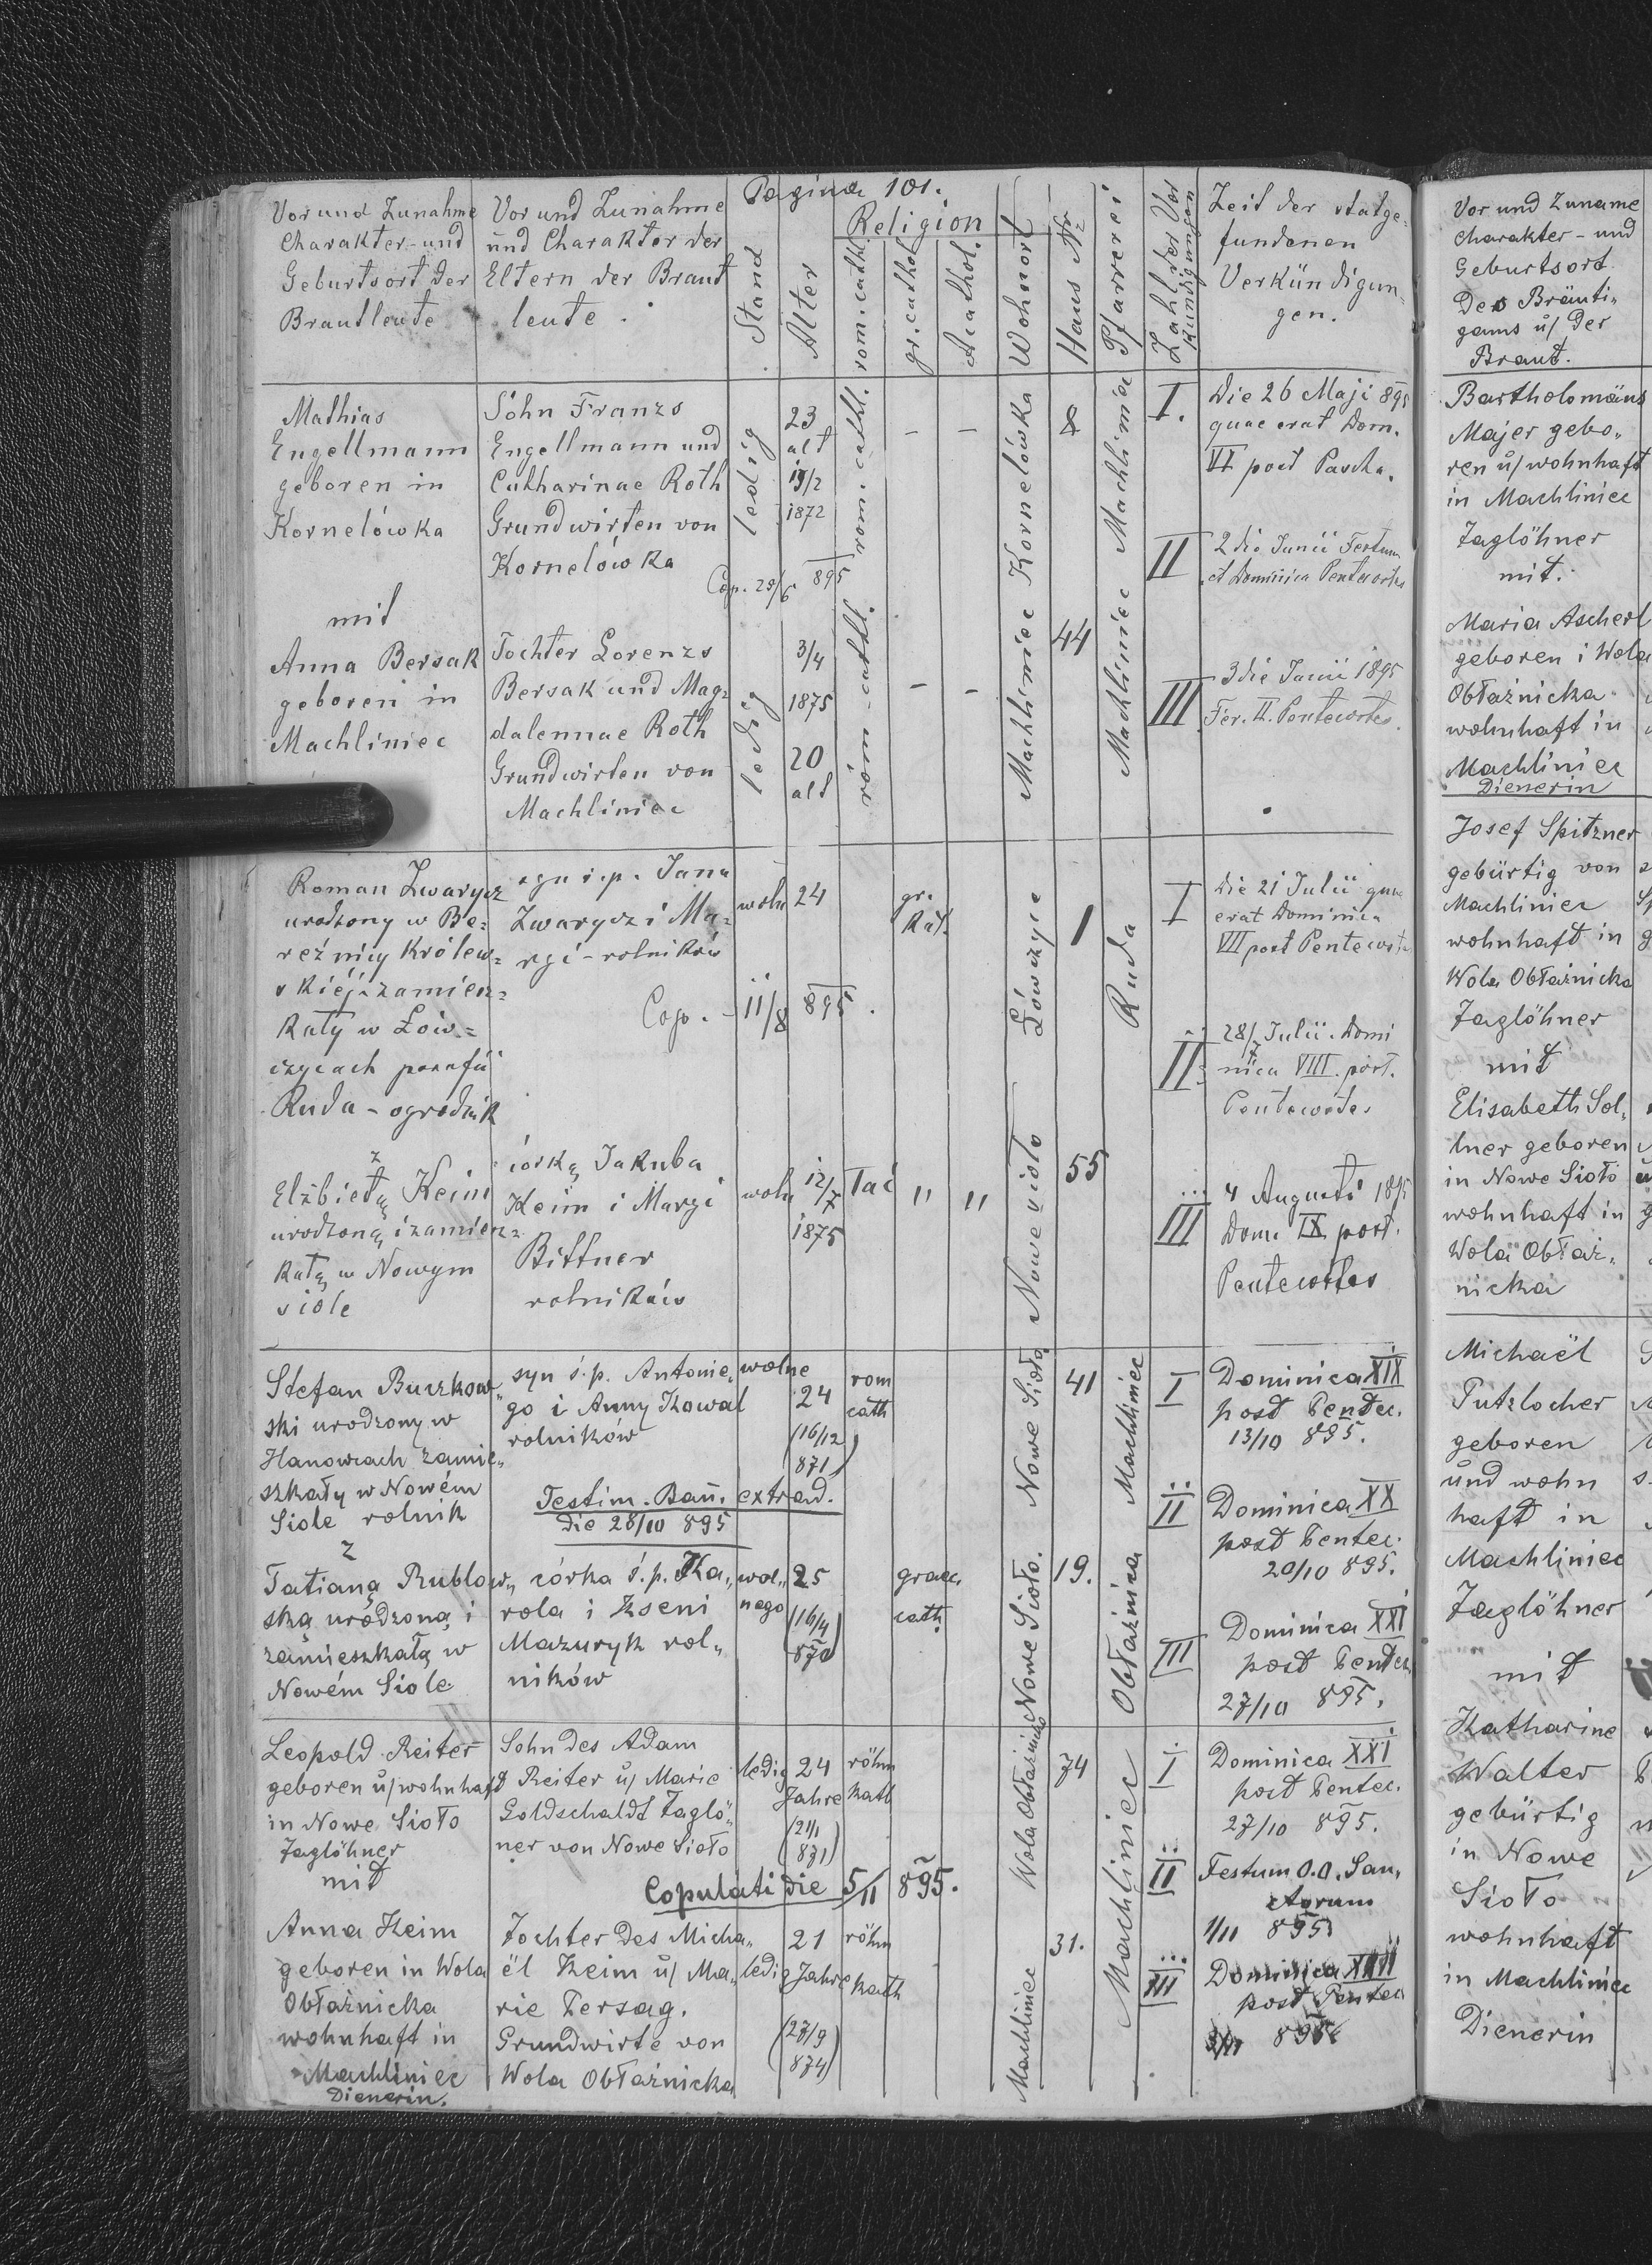 Pagina 101.
Vor und Zunahme
Charakter- und
Geburtsort der
Brautleute
Vor und Zunahme
und Charakter der
Eltern der Braut
leute.
Stand
Alter
Religion
rom. cathl.
gr. cathol.
Acathol.
Wohnort
Haus Nr
Pfarrei
Zahl der Ver
kündigungen
Zeit der statge-
fundenen
Verkündigun-
gen.
Mathias
Engellmann
geboren in
Kornelówka
mit
Anna Bersak
geboren in
Machliniec
Sohn Franzs
Engellmann und
Catharinae Roth
Grundwirten von
Kornelówka
Cop. 25/6 895
Tochter Lorenzs
Bersak und Mag=
dalennae Roth
Grundwirten von
Machliniec
ledig
ledig
23
alt
19/2
1872
3/4
1875
20
alt
rom. cathl.
röm-cathl.
– –
– –
Kornelówka
Machliniec
8
44
Machliniec
Machliniec
I.
Die 26 Maji 895
quae erat Dom.
VI post Pascha.
II
2 die Junii Festum
et Dominica Pentecostes
III
3 die Junii 1895
Fer. II. Pentecostes.
Roman Zwarycz
urodzony w Be=
reźnicy Królew=
skiéj zamiesz=
kały w Łów=
czycach parafii
Ruda - ogrodnik
z
Elżbietą Keim
urodzoną i zamiesz=
kałą w Nowym
siole
syn ś.p. Jana
Zwarycz i Ma=
ryi - rolników
Cop. - 11/8 895.
córką Jakuba
Keim i Maryi
Bittner
rolników
woln
24
gr.
kat.
woln
12/7
1875
łać
" "
Łówczyce
Nowe sioło
1
55
Ruda
I
Die 21 Julii quae
erat Dominica
VII post Pentecost
II
28/7 Julii. Domi
nica VIII. post.
Pentecostes
III
4 Augusti 1895
Dom. IX post.
Pentecostes
Stefan Buczkow„
ski urodzony w
Hanowcach zamie„
szkały w Nowém
Siole rolnik
z
Tatianą Rublow„
ską urodzoną i
zamieszkałą w
Nowém Siole
syn ś.p. Antonie„
go i Anny Kowal
rolników
Testim. Bañ. extrad.
die 28/10 895
córka ś.p. Ka„
rola i Kseni
Mazuryk rol„
ników
wolne
24
(16/12
871)
rom
cath
wol„
nego
25
(16/4
870)
graec.
cath.
Nowe Sioło
Nowe Sioło.
41
19.
Machliniec
Obłaźnica
I
Dominica XIX
post Pentec.
13/10 895.
II
Dominica XX
post Pentec.
20/10 895.
III
Dominica XXI
post Pentec
27/10 895.
Leopold Reiter
geboren u/ wohnhaft
in Nowe Sioło
Taglöhner
mit
Anna Keim
geboren in Wola
Obłaźnicka
wohnhaft in
Machliniec
Dienerin.
Sohn des Adam
Reiter u/ Marie
Goldschaldt Taglö„
ner von Nowe Sioło
Copulati die 5/11 895.
Tochter des Micha„
ël Keim u/ Ma„
rie Persag.
Grundwirte von
Wola Obłaźnicka
ledig
24
Jahre
(21/1
871)
röhm
kath
ledig
21
Jahre
(27/9
874)
röhm
kath
Wola Obłaźnicka
Machliniec
74
31.
Machliniec
I
Dominica XXI
post Pentec.
27/10 895.
II
Festum O.O. San„
ctorum
1/11 895
III
Dominica XXII
post Pentec
3/11 895
Vor und Zuname
Charakter - und
Geburtsort
Des Bräuti„
gams u/ der
Braut.
Bartholomäus
Majer gebo„
ren u/ wohnhaft
in Machliniec
Taglöhner
mit.
Maria Ascherl
geboren i Wola
Obłaźnicka
wohnhaft in
Machliniec
Dienerin
Josef Spitzner
gebürtig von
Machliniec
wohnhaft in
Wola Obłaźnicka
Taglöhner
mit
Elisabeth Sol„
tner geboren
in Nowe Sioło
wohnhaft in
Wola Obłaź„
nicka
Michaël
Putzlocher
geboren
und wohn
haft in
Machliniec
Taglöhner
mit
Katharine
Walter
gebürtig
in Nowe
Sioło
wohnhaft
in Machliniec
Dienerin